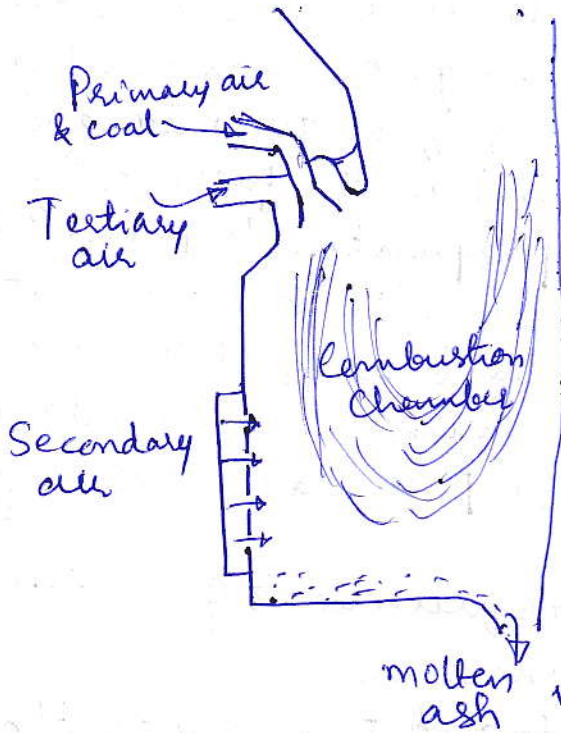 Primary air
& coal
Tertiary
air
Combustion
Chamber
Secondary
air
molten
ash